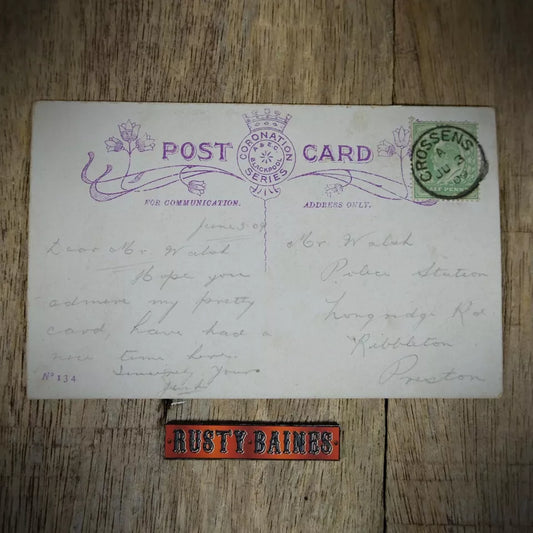 POST CARD
CORONATION
A & E.C.
BLACKPOOL
SERIES
FOR COMMUNICATION.
ADDRESS ONLY.
CROSSENS
A
JU 3
09
HALF PENNY
June 3. 09
Dear Mr. Walsh
Hope you
admire my pretty
card, have had a
nice time here.
Sincerely Yours
Mr. Walsh
Police Station
Longridge Rd
Ribbleton
Preston
No 134
RUSTY BAINES